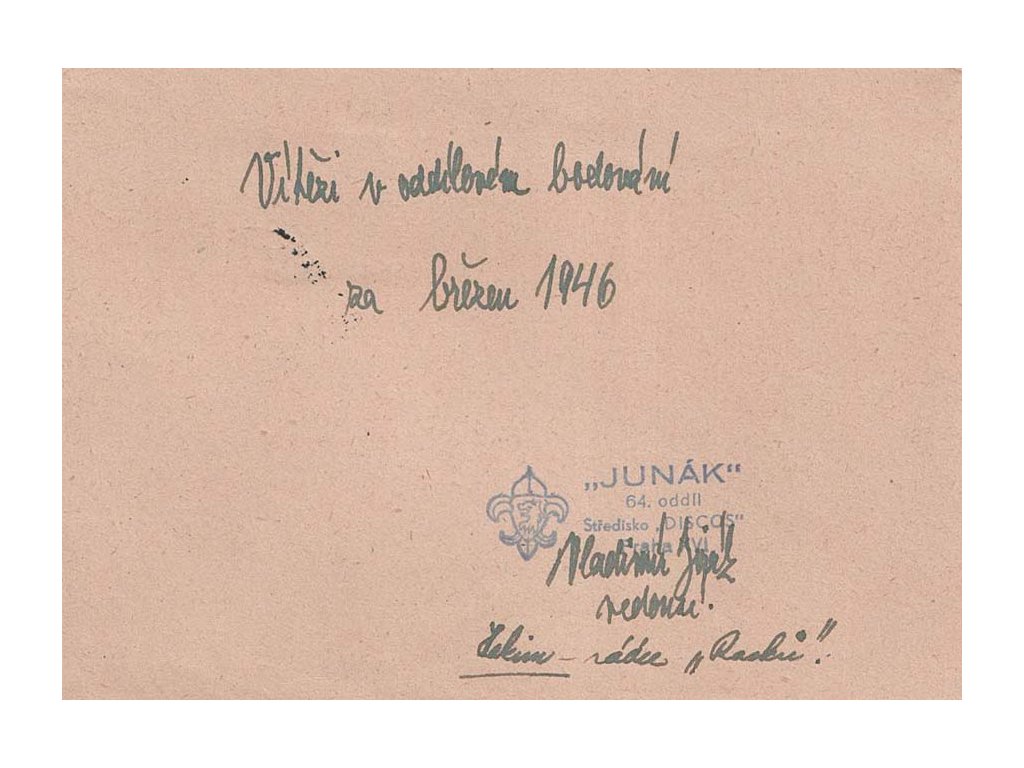 Vítězi v oddílovém bodování
za březen 1946
„JUNÁK“
64. oddíl
Středisko „DISCOS“
Praha XVI.
Vladimír
vedoucí.
– rádce „